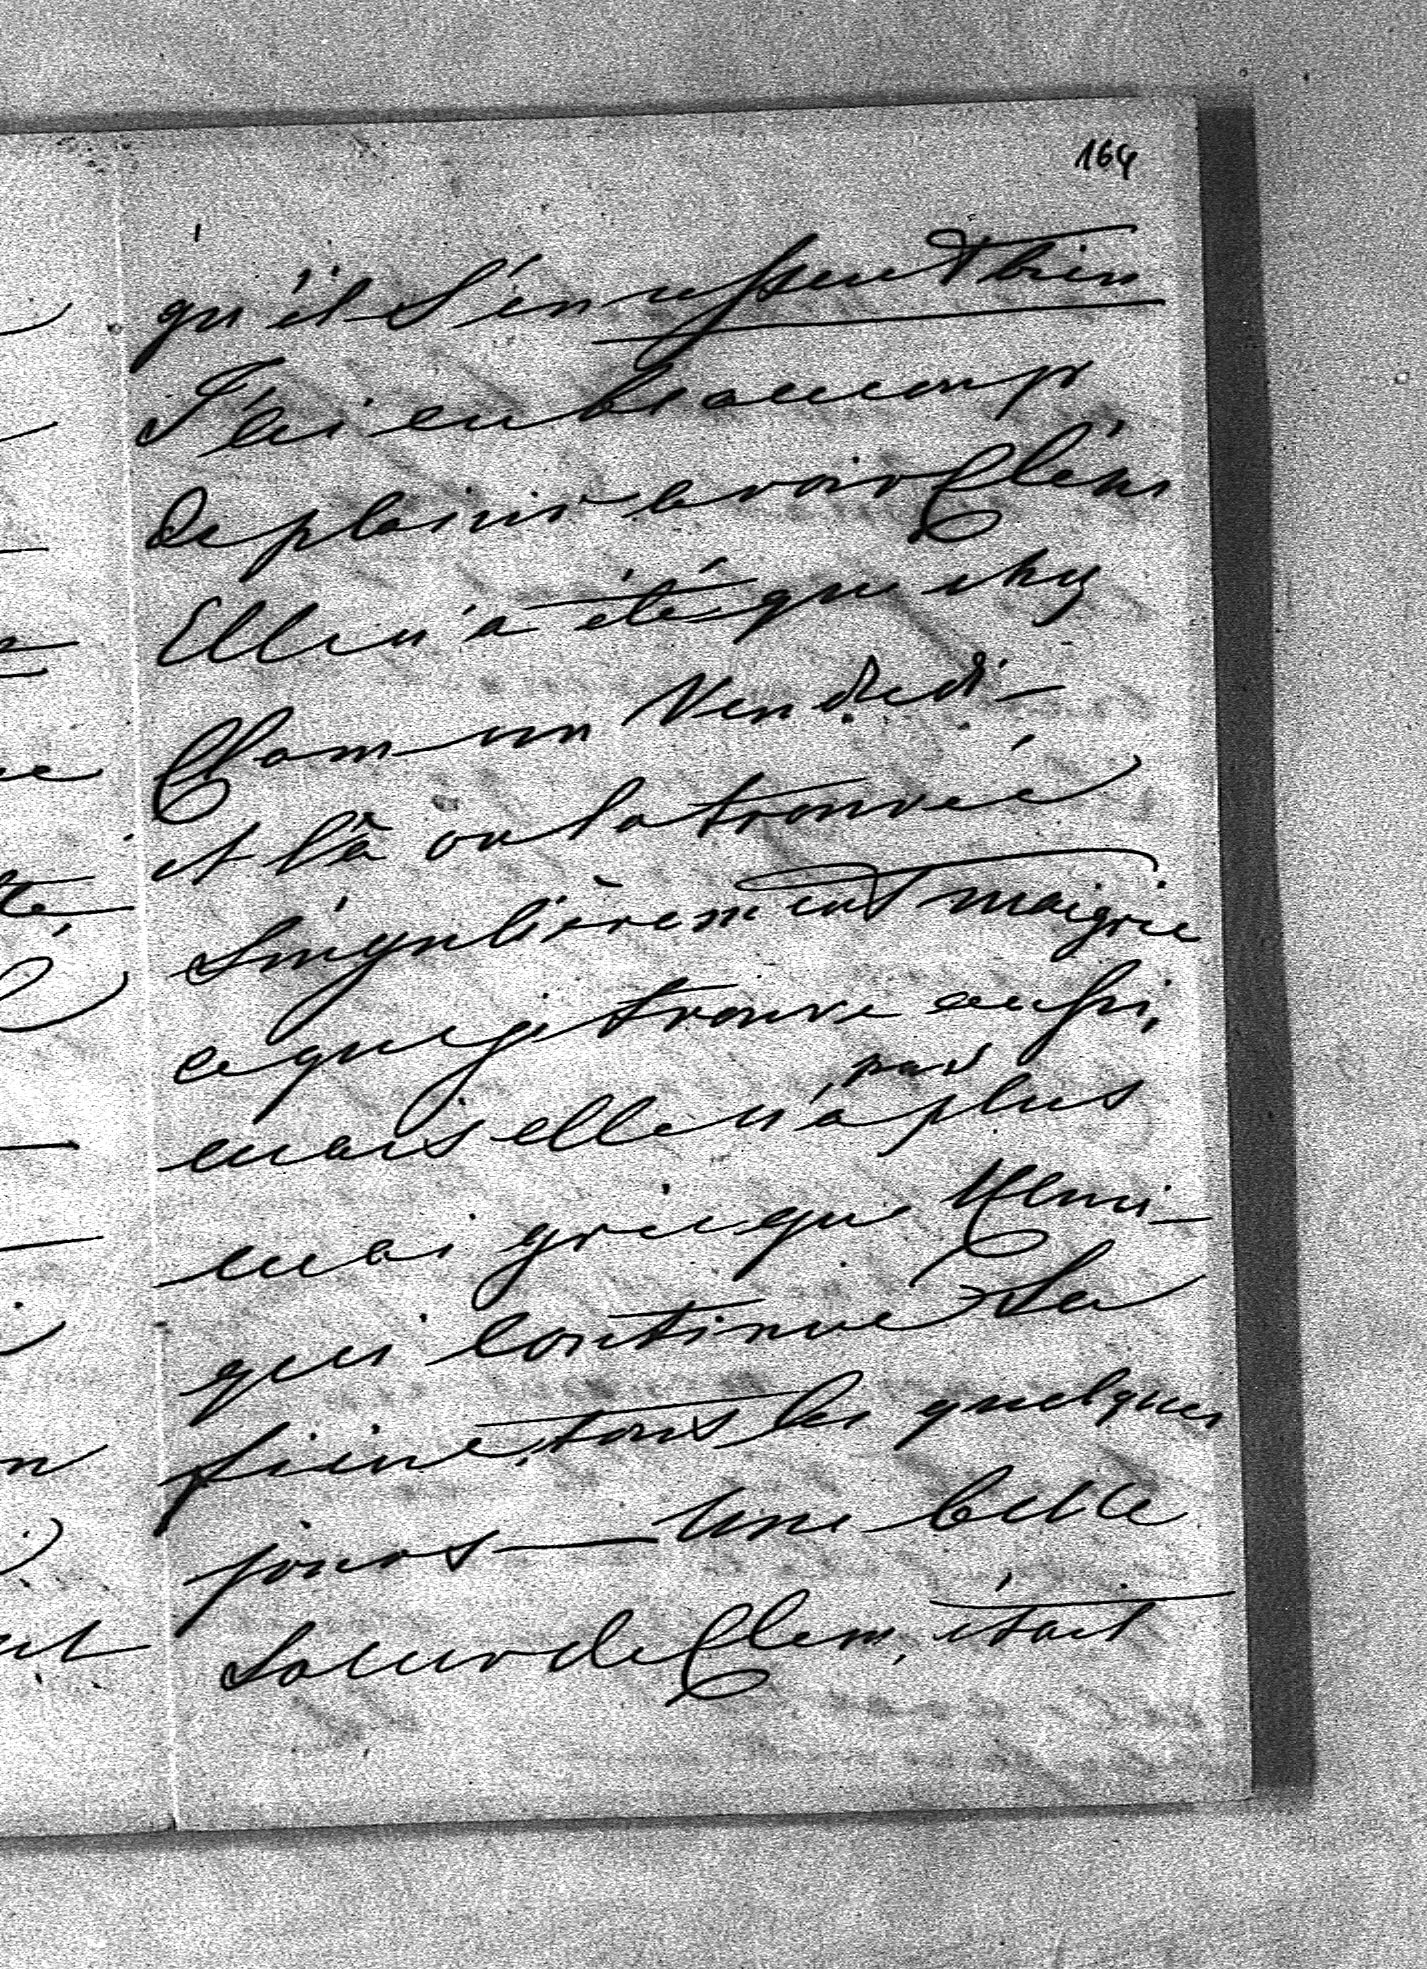 164
qu'il s'en ressent bien
J'ai eu beaucoup
de plaisir a voir Clém
Elle n'a été que chez
Cham un Vendredi —
et là on la trouvée
singulièrement maigrie
ce que je trouve aussi,
mais elle n'a pas plus
maigrie que
qui continue sa
fièvre, tous les quelques
jours — Une belle
soeur de Clem, était